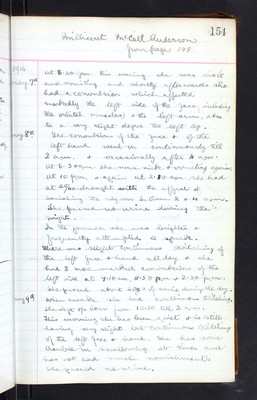 154
Millicent McColl Anderson
from page 148.
1914
May 7th at 8.20 pm this evening she was sick
and vomiting and shortly afterwards she
had a convulsion which affected
markedly the left side of the face, including
the orbital muscles, & the left arm, also
to a very slight degree the left leg.
May 8th The convulsion of the face & of the
left hand went on continuously till
2 a.m. & occasionally after 4 a.m.
at 6.30 a.m. she was sick & vomiting again
at 10 p.m. & again at 2.30 a.m. she had
a draught with the effect of
the between 2 & 4 a.m.
She passed no urine during the
night.
In the forenoon she was brighter &
frequently attempted to speak.
There was slight continuous twitching of
the left face & hand all day & she
had 3 more marked convulsions of the
left side at
She passed about of urine during the day.
May 9th When awake she had continuous twitching.
She slept on & off from 12.30 till 2 a.m.
This morning she has been quiet & is still
having very slight but continuous twitching
of the left face & hand. She has some
trouble in swallowing at times and
has not had much nourishment.
She passed no urine.